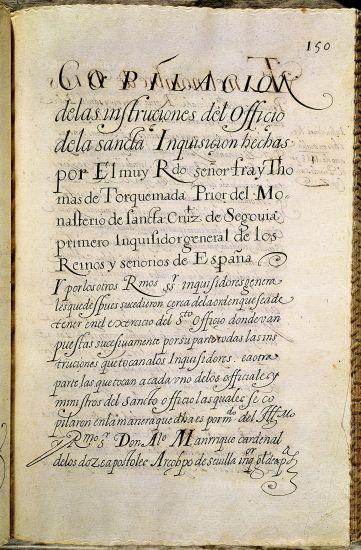 150
COPILACION
delas instruciones del Officio
dela sancta Inquisicion hechas
por El muy Rdo señor fray Tho
mas de Torquemada Prior del Mo-
nasterio de sancta Cruz de Segovia
primero Inquisidor general de los
Reinos y señorios de España
Y por los otros Rmos ss.res inquisidores genera
les que despues sucedieron cerca dela orden que se a de
tener en el exercicio del Sto Officio donde van
puestas succesivamente por su parte todas las ins
truciones que tocan alos Inquisidores. e a otra
parte las que tocan a cada vno delos officiales y
ministros del sancto officio las quales se co
pilaron en la manera que dicha es por mdo del Illmo
Rmo s. Don Alo Manrrique cardenal
delos doze apostoles Arcobpo de sevilla inqor gl de espa